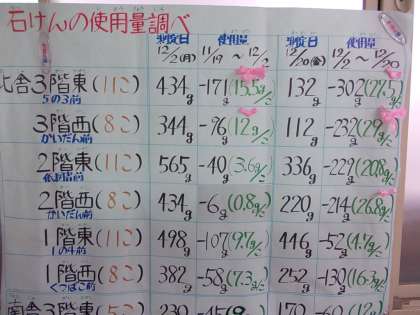 石けんの使用量調べ
測定日 使用量 測定日 使用量
12/2(月) 11/19~12/2 12/20(金) 12/2~12/20
北舎3階東(11こ) 434g -171g(15.5g/こ) 132g -302g(27.5g/こ)
5の3前
3階西(8こ) 344g -96g(12g/こ) 112g -232g(29g/こ)
かいだん前
2階東(11こ) 565g -40g(3.6g/こ) 336g -229g(20.8g/こ)
2階西(8こ) 434g -6g(0.8g/こ) 220g -214g(26.8g/こ)
かいだん前
1階東(11こ) 498g -107g(9.7g/こ) 446g -52g(4.7g/こ)
1の4前
1階西(8こ) 382g -58g(7.3g/こ) 252g -130g(16.3g/こ)
くつばこ前
南舎3階東(5こ) 230 -45 170 -60